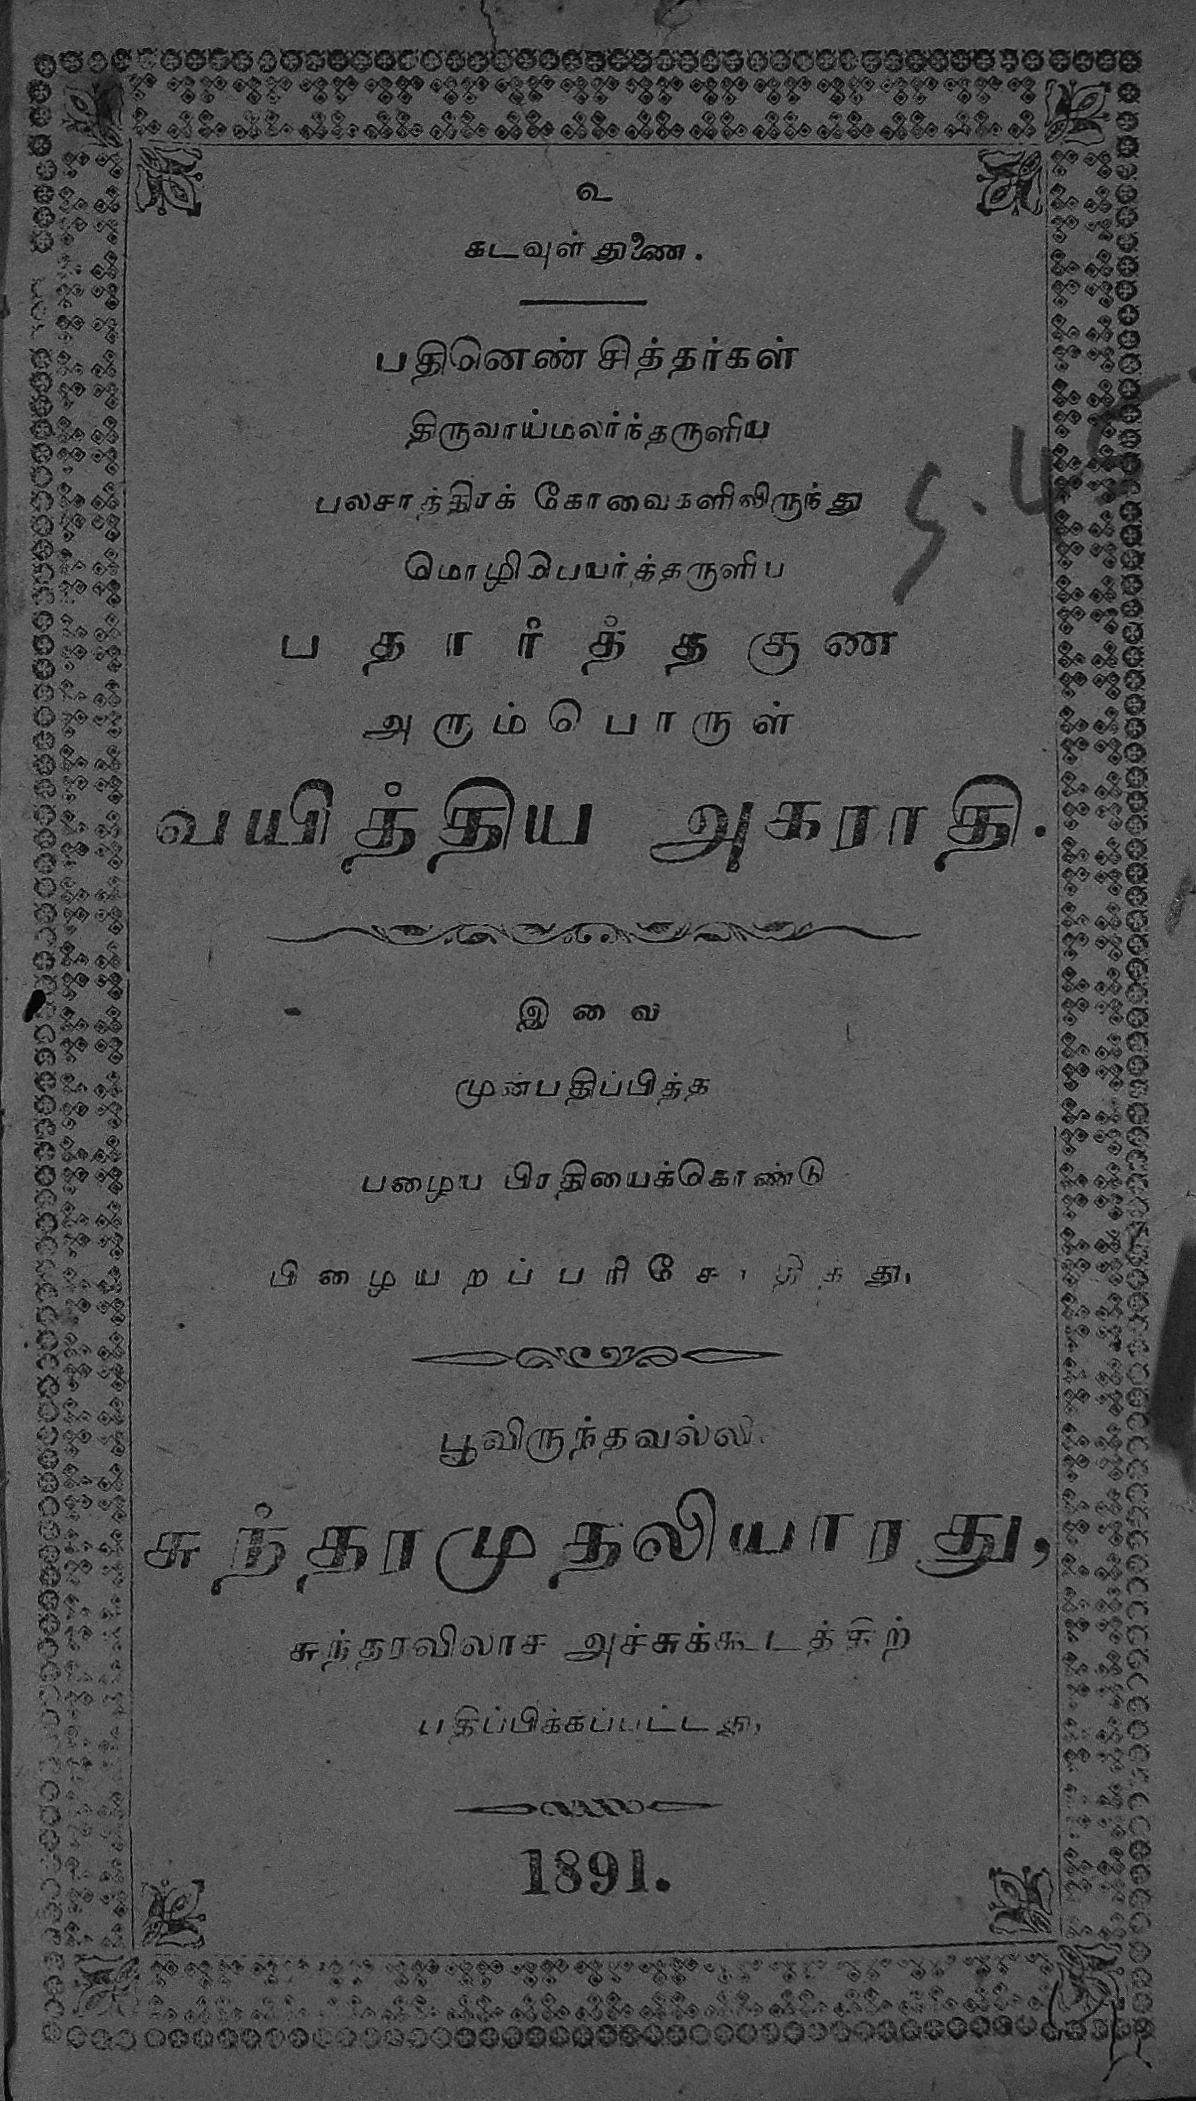 உ
கடவுள் துணை.
பதினெண் சித்தர்கள்
திருவாய்மலர்ந்தருளிய
பலசாத்திரக் கோவைகளிலிருந்து
மொழிபெயர்த்தருளிய
பதார்த்தகுண
அரும்பொருள்
வயித்திய அகராதி.
இவை
முன்பதிப்பித்த
பழைய பிரதியைக்கொண்டு
பிழையறப்பரிசோதித்து,
பூவிருந்தவல்லி.
சுந்தரமுதலியாரது,
சுந்தரவிலாச அச்சுக்கூடத்திற்
பதிப்பிக்கப்பட்டது,
1891.